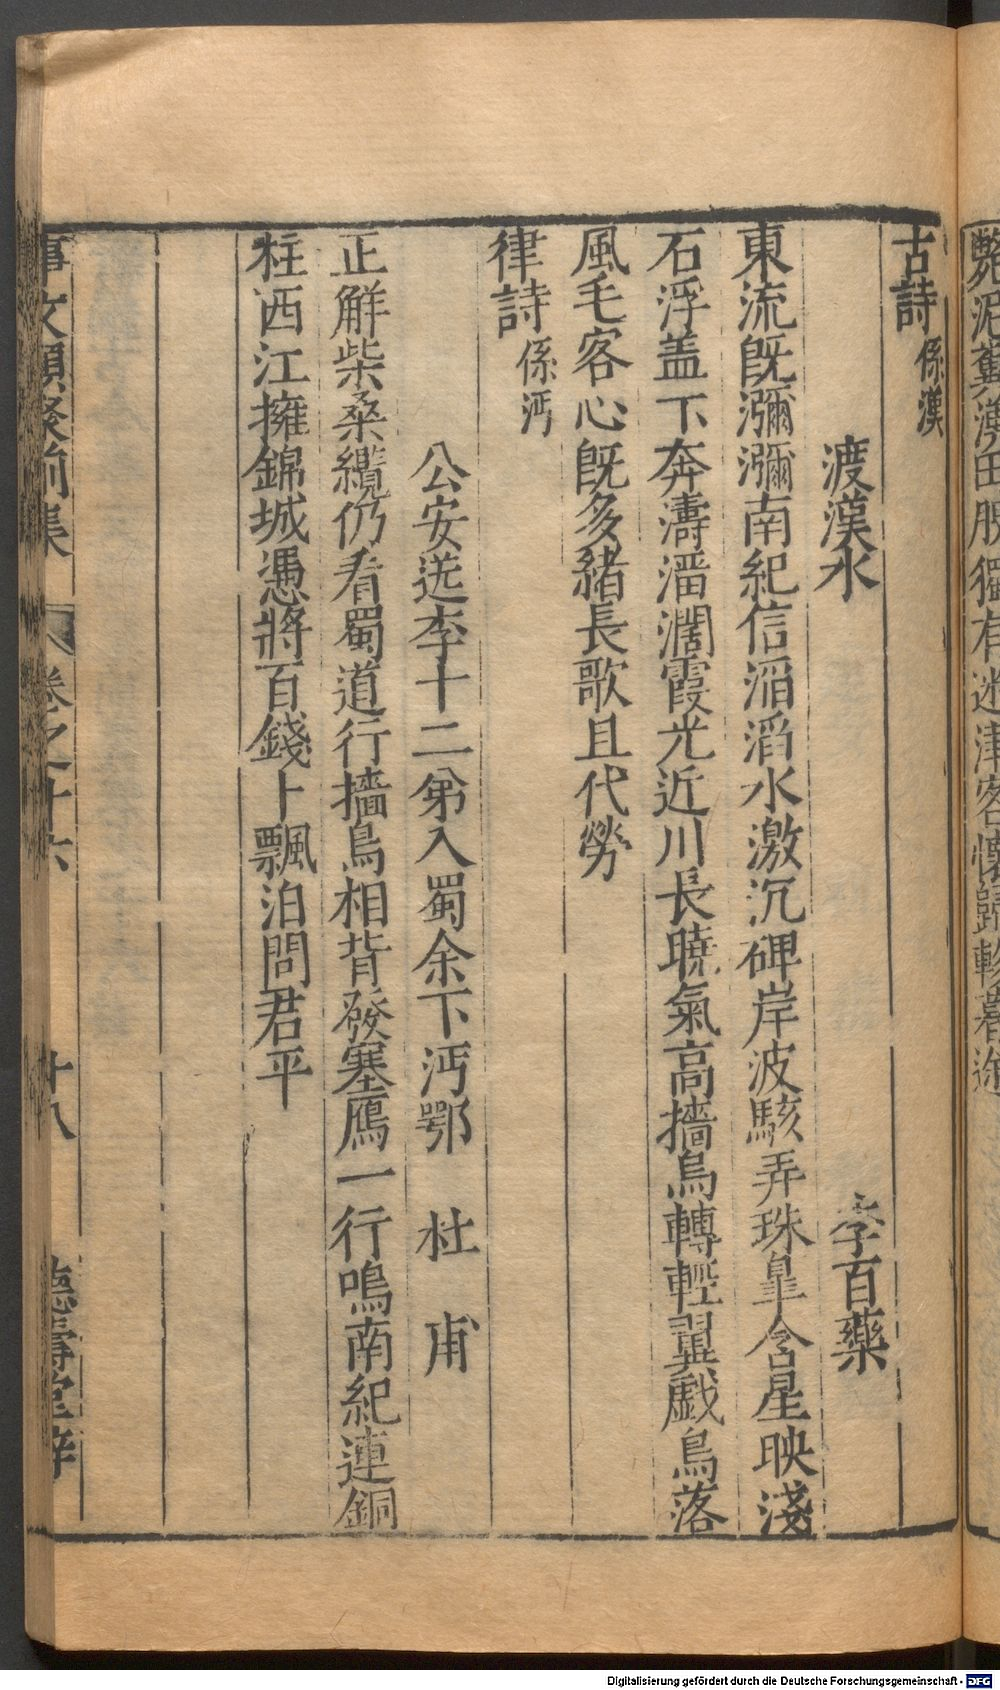 艶沼糞漢田脫獨有迷津客懷歸軫暮途
古詩係漢
渡漢水 李百藥
東流旣瀰瀰南紀信滔滔水激沉碑岸波駭弄珠臯含星映淺
石浮盖下奔濤溜濶霞光近川長曉氣高檣烏轉輕翼戱鳥落
風毛客心旣多緒長歌且代勞
律詩係沔
公安送李十二弟入蜀余下沔鄂 杜甫
正解柴桑纜仍看蜀道行檣烏相背發塞鴈一行鳴南紀連銅
柱西江擁錦城憑將百錢卜飄泊問君平
事文類聚前集 卷之十六 十八 德壽堂梓
Digitalisierung gefördert durch die Deutsche Forschungsgemeinschaft - DFG